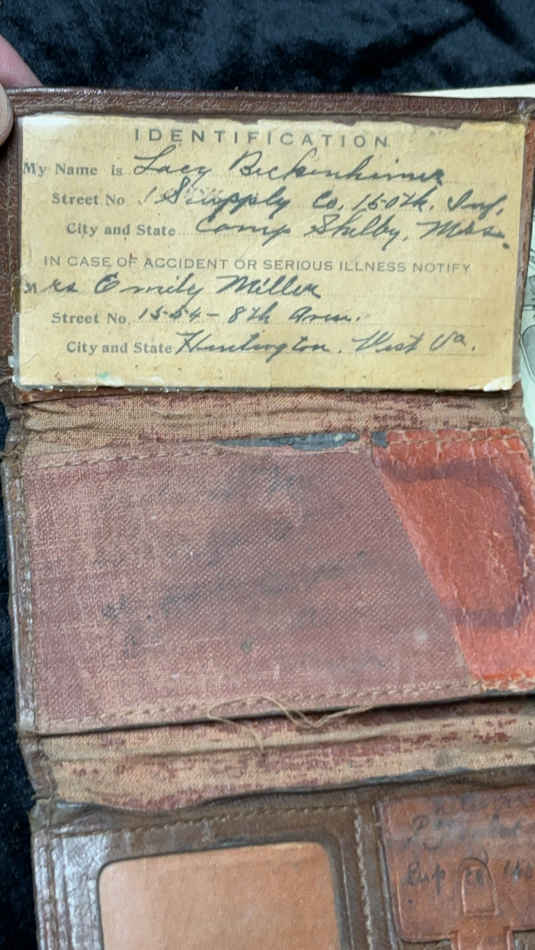 IDENTIFICATION
My Name is Lacy Beckenheimer
Street No. Supply Co. 150th. Inf.
City and State Camp Shelby, Miss.
IN CASE OF ACCIDENT OR SERIOUS ILLNESS NOTIFY
Mrs Emily Miller
Street No. 1554 - 8th Aven.
City and State Huntington. West Va.